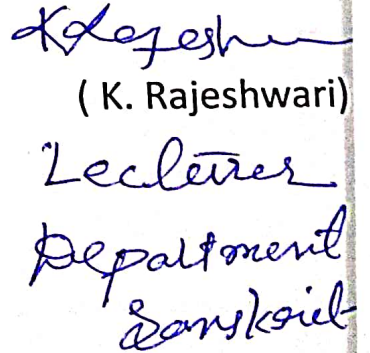 K Rajeshwari
( K. Rajeshwari)
Lecturer
Department
Sanskrit